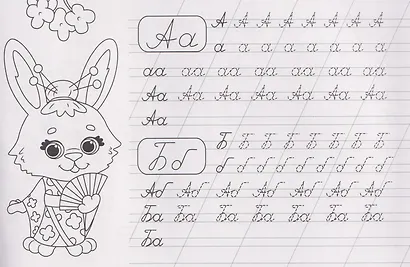 Аа
А А А А А А А А
а а а а а а а а
аа аа аа аа аа аа аа
Аа Аа Аа Аа Аа Аа Аа
Аа
Бб
Б Б Б Б Б Б Б Б
б б б б б б б б б
Аб Аб Аб Аб Аб Аб
Ба Ба Ба Ба Ба Ба Ба
Ба